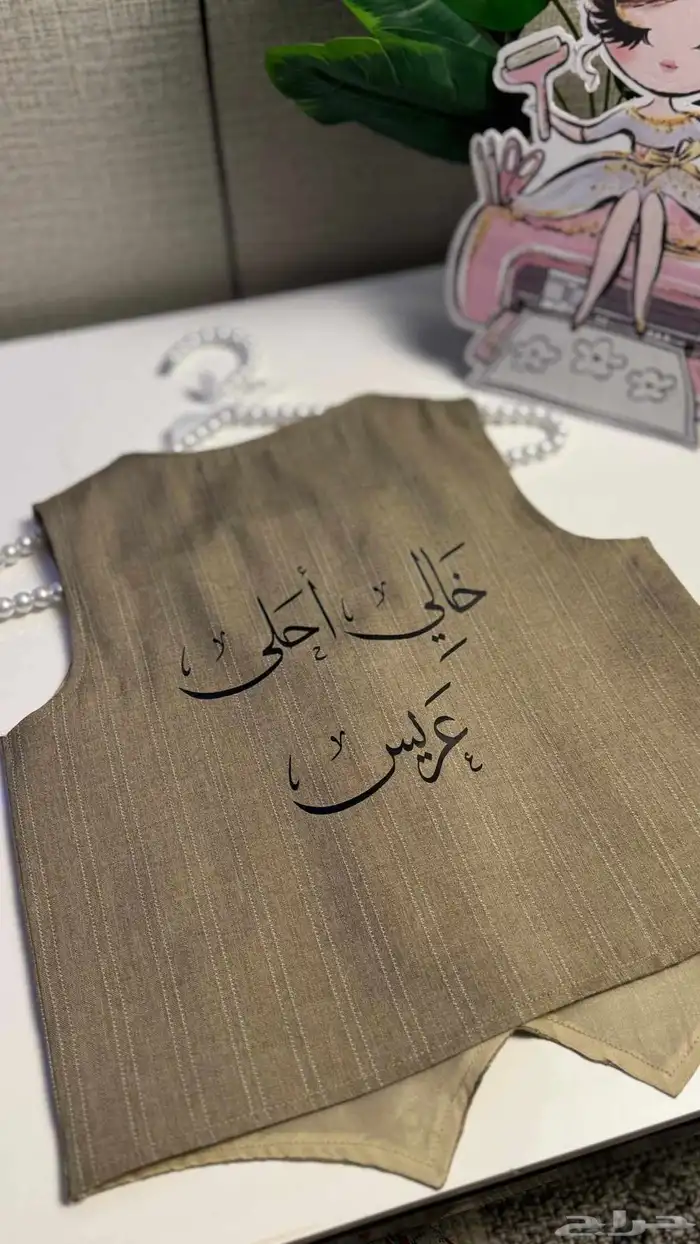 خَالِي أحَلى
عَريس
حراج